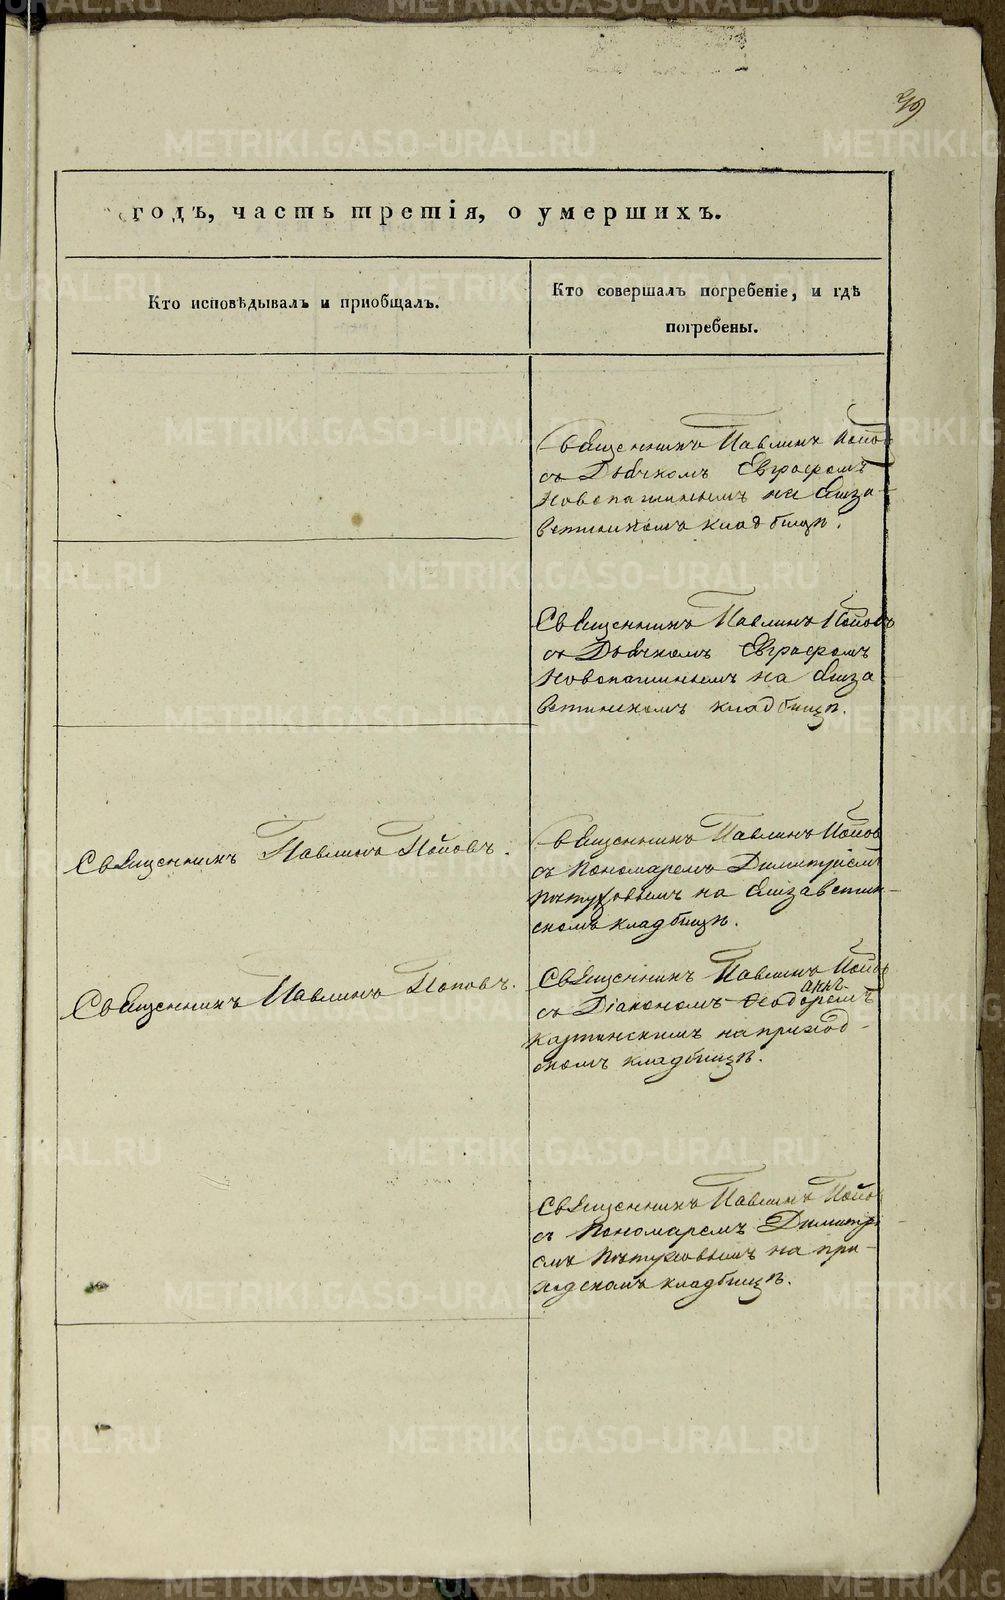 79
годъ, часть третія, о умершихъ.
Кто исповѣдывалъ и приобщалъ.
Кто совершалъ погребеніе, и гдѣ
погребены.
Священникъ Павлинъ Попов
съ Дьячкомъ Евграфомъ
на Елиза-
ветинскомъ кладбищѣ.
Священникъ Павлинъ Поповъ
съ Дьячкомъ Евграфомъ
на Елиза
ветинскомъ кладбищѣ.
Священникъ Павлинъ Поповъ.
Священникъ Павлинъ Попов
съ Пономаремъ Димитріемъ
Пѣтуховымъ на Елизаветин-
скомъ кладбищѣ.
Священникъ Павлинъ Поповъ.
Священникъ Павлинъ Попов
съ Діакономъ
на приход-
скомъ кладбищѣ.
Священникъ Павлинъ Попо
съ Пономаремъ Димитрі
емъ Пѣтуховымъ на при-
ходскомъ кладбищѣ.
METRIKI.GASO-URAL.RU